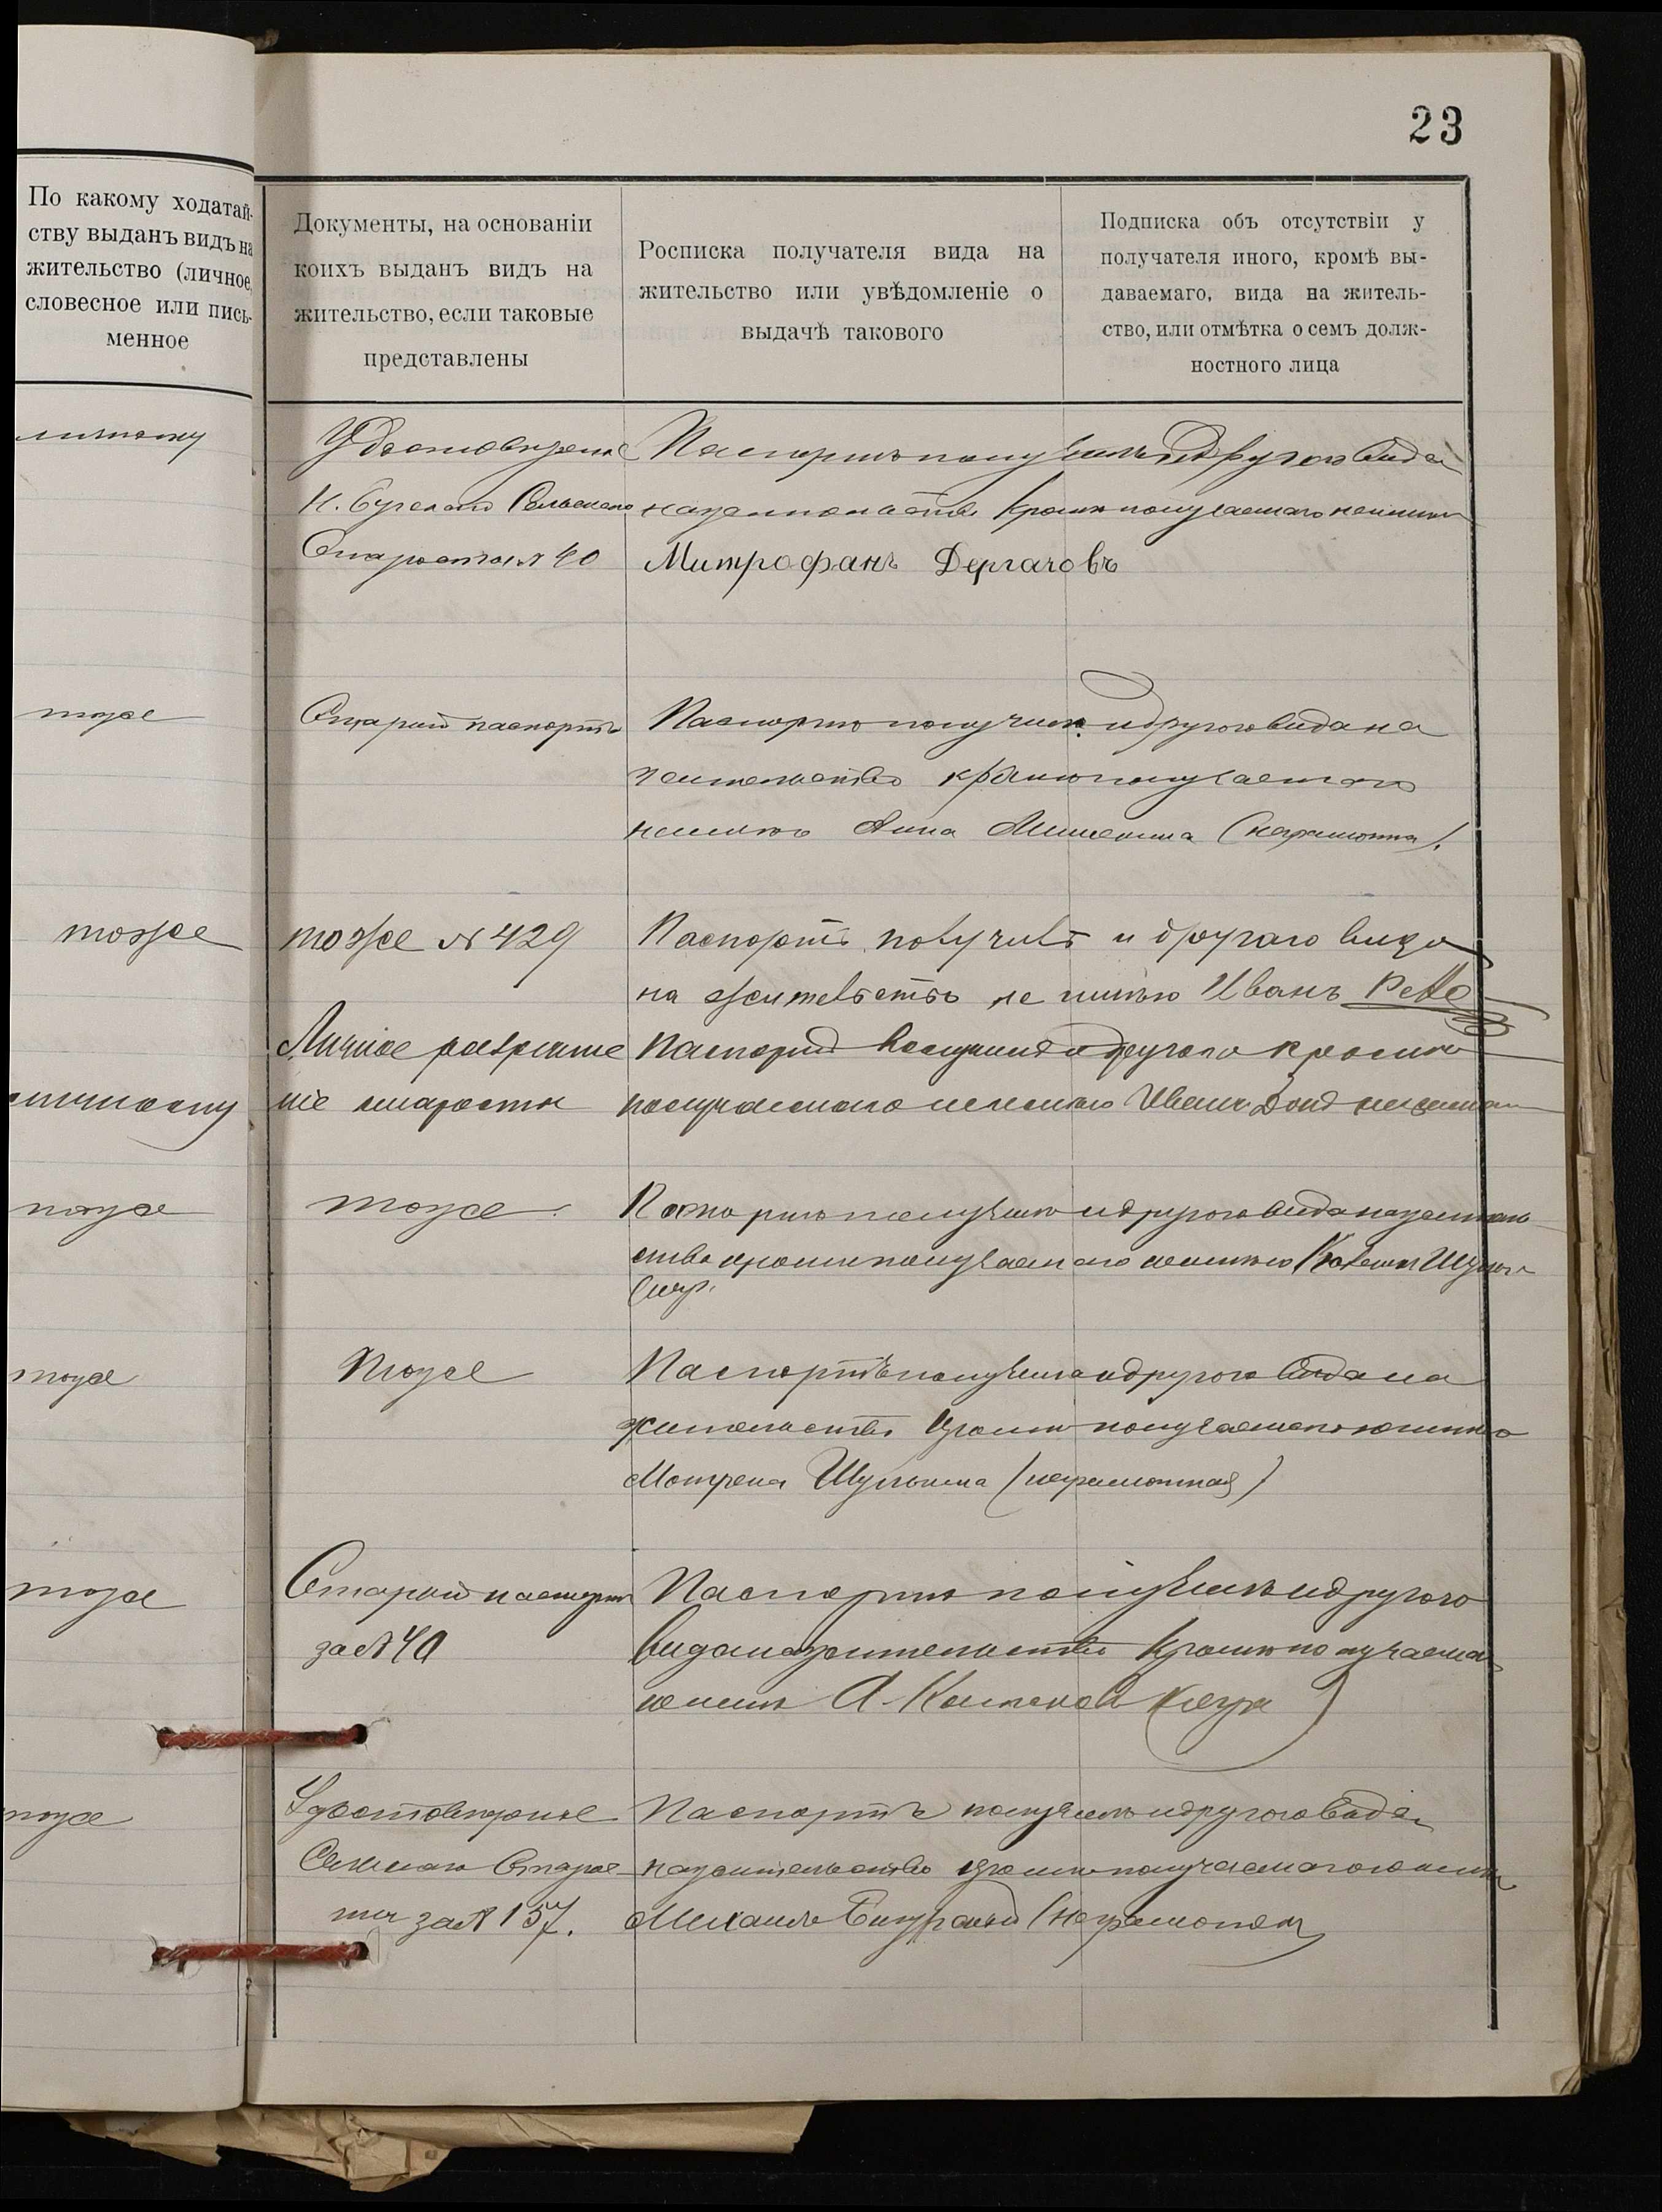 23
По какому ходатай-
ству выданъ видъ на
жительство (личное,
словесное или пись-
менное
Документы, на основаніи
коихъ выданъ видъ на
жительство, если таковые
представлены
Росписка получателя вида на
жительство или увѣдомленіе о
выдачѣ такового
Подписка объ отсутствіи у
получателя иного, кромѣ вы-
даваемаго, вида на житель-
ство, или отмѣтка о семъ долж-
ностного лица
личному
Удостовѣреніе
Сельскаго
Старосты № 40
Паспортъ получилъ и другого вида
на жительство кромѣ получаемаго неимѣю
Митрофанъ Дергачовъ
тоже
Старый паспортъ
Паспортъ получила и другого вида на
жительство кромѣ получаемаго
неимѣю Анна (неграмотна).
тоже
тоже № 429
Паспортъ получилъ и другаго вида
на жительство не имѣю Иванъ
личному
Личное разрѣше
ніе старосты
Паспортъ получилъ и другого кромѣ
получаемаго неимѣю Иванъ
тоже
тоже
Паспортъ получилъ и другого вида на житель
ство кромѣ получаемаго неимѣю
тоже
Тоже
Паспортъ получила и другого вида на
жительство кромѣ получаемаго неимѣю
Мотрена Шульгина (неграмотная)
тоже
Старый паспортъ
за № 40
Паспортъ получилъ и другого
вида на жительство кромѣ получаема
неимѣю А.
тоже
Удостовѣреніе
Сельскаго Старос
ты за № 157.
Паспортъ получилъ и другого вида
на жительство кромѣ получаемаго неимѣю
Михаилъ (неграмотен)